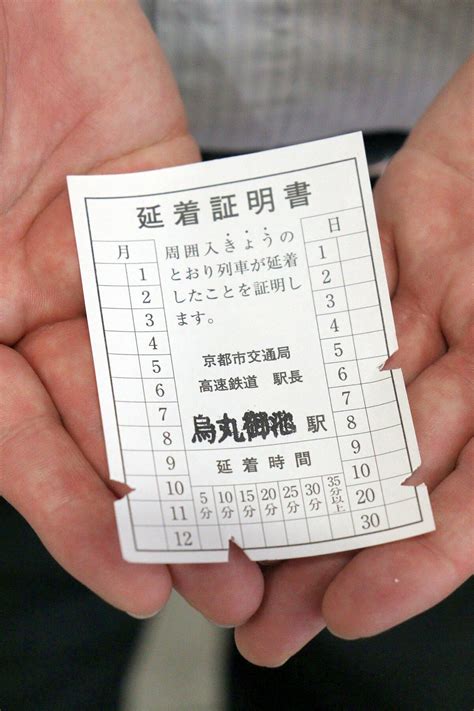 延着証明書
月
日
周囲入きょうの
とおり列車が延着
したことを証明し
ます。
京都市交通局
高速鉄道 駅長
烏丸御池 駅
延着時間
5分 10分 15分 20分 25分 30分 35分以上
1
2
3
4
5
6
7
8
9
10
11
12
1
2
3
4
5
6
7
8
9
10
20
30